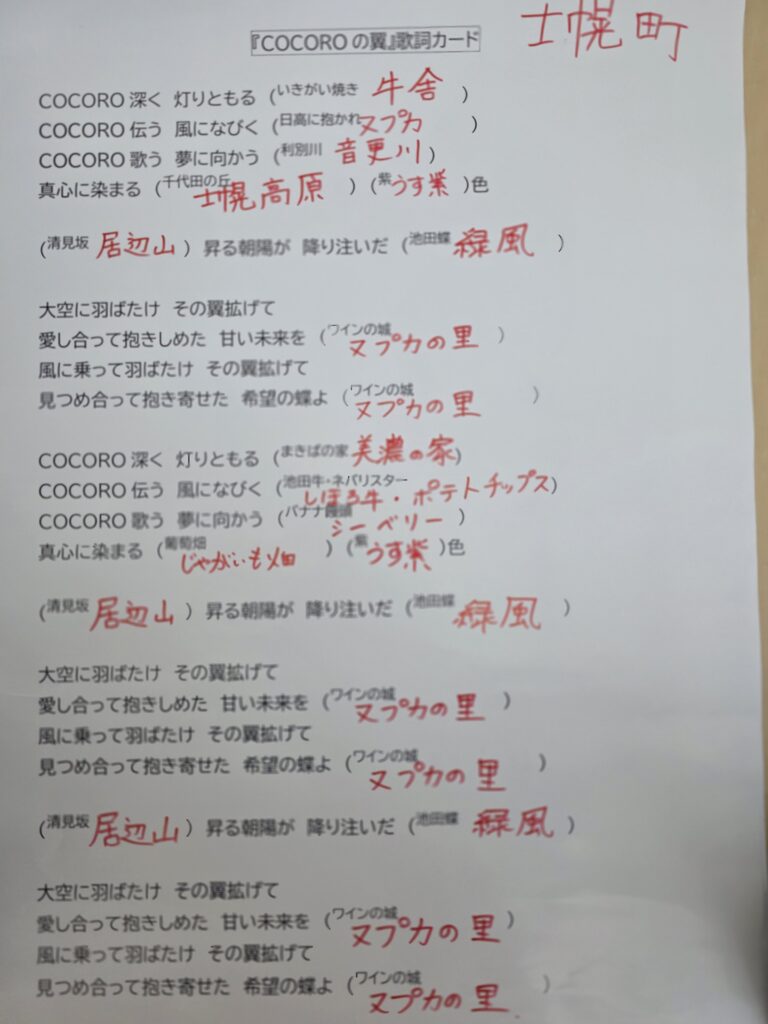 士幌町
『COCOROの翼』歌詞カード
COCORO深く 灯りともる (いきがい焼き 牛舎 )
COCORO伝う 風になびく (日高に抱かれ ヌプカ )
COCORO歌う 夢に向かう (利別川 音更川 )
真心に染まる (千代田の丘 士幌高原 ) (紫 うす紫 )色
(清見坂 居辺山 ) 昇る朝陽が 降り注いだ (池田蝶 緑風 )
大空に羽ばたけ その翼拡げて
愛し合って抱きしめた 甘い未来を (ワインの城 ヌプカの里 )
風に乗って羽ばたけ その翼拡げて
見つめ合って抱き寄せた 希望の蝶よ (ワインの城 ヌプカの里 )
COCORO深く 灯りともる (まきばの家 美濃の家)
COCORO伝う 風になびく (池田牛・ネバリスター しほろ牛・ポテトチップス)
COCORO歌う 夢に向かう (バナナ饅頭 シーベリー )
真心に染まる (葡萄畑 じゃがいも畑 ) (紫 うす紫 )色
(清見坂 居辺山 ) 昇る朝陽が 降り注いだ (池田蝶 緑風 )
大空に羽ばたけ その翼拡げて
愛し合って抱きしめた 甘い未来を (ワインの城 ヌプカの里 )
風に乗って羽ばたけ その翼拡げて
見つめ合って抱き寄せた 希望の蝶よ (ワインの城 ヌプカの里 )
(清見坂 居辺山 ) 昇る朝陽が 降り注いだ (池田蝶 緑風 )
大空に羽ばたけ その翼拡げて
愛し合って抱きしめた 甘い未来を (ワインの城 ヌプカの里 )
風に乗って羽ばたけ その翼拡げて
見つめ合って抱き寄せた 希望の蝶よ (ワインの城 ヌプカの里 )